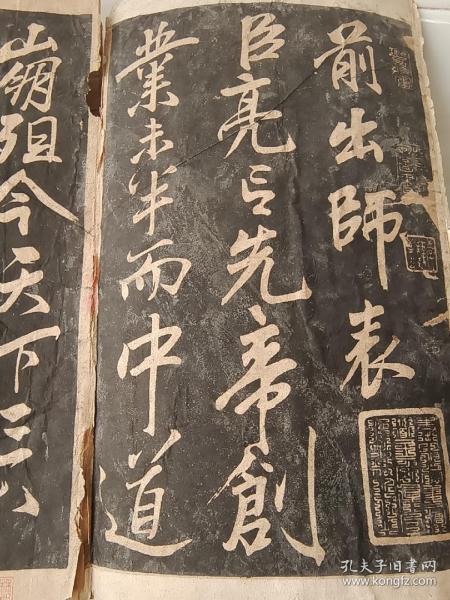 前出師表
臣亮言先帝創
業未半而中道
崩殂今天下三
孔夫子旧书网
www.kongfz.com